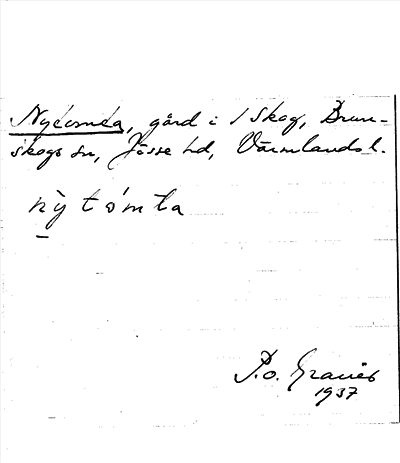 Nytomta, gård i / Skog, Brun-
skogs sn, Jösse hd, Värmlands l.
nỳ tómta
P.o. Granér
1937